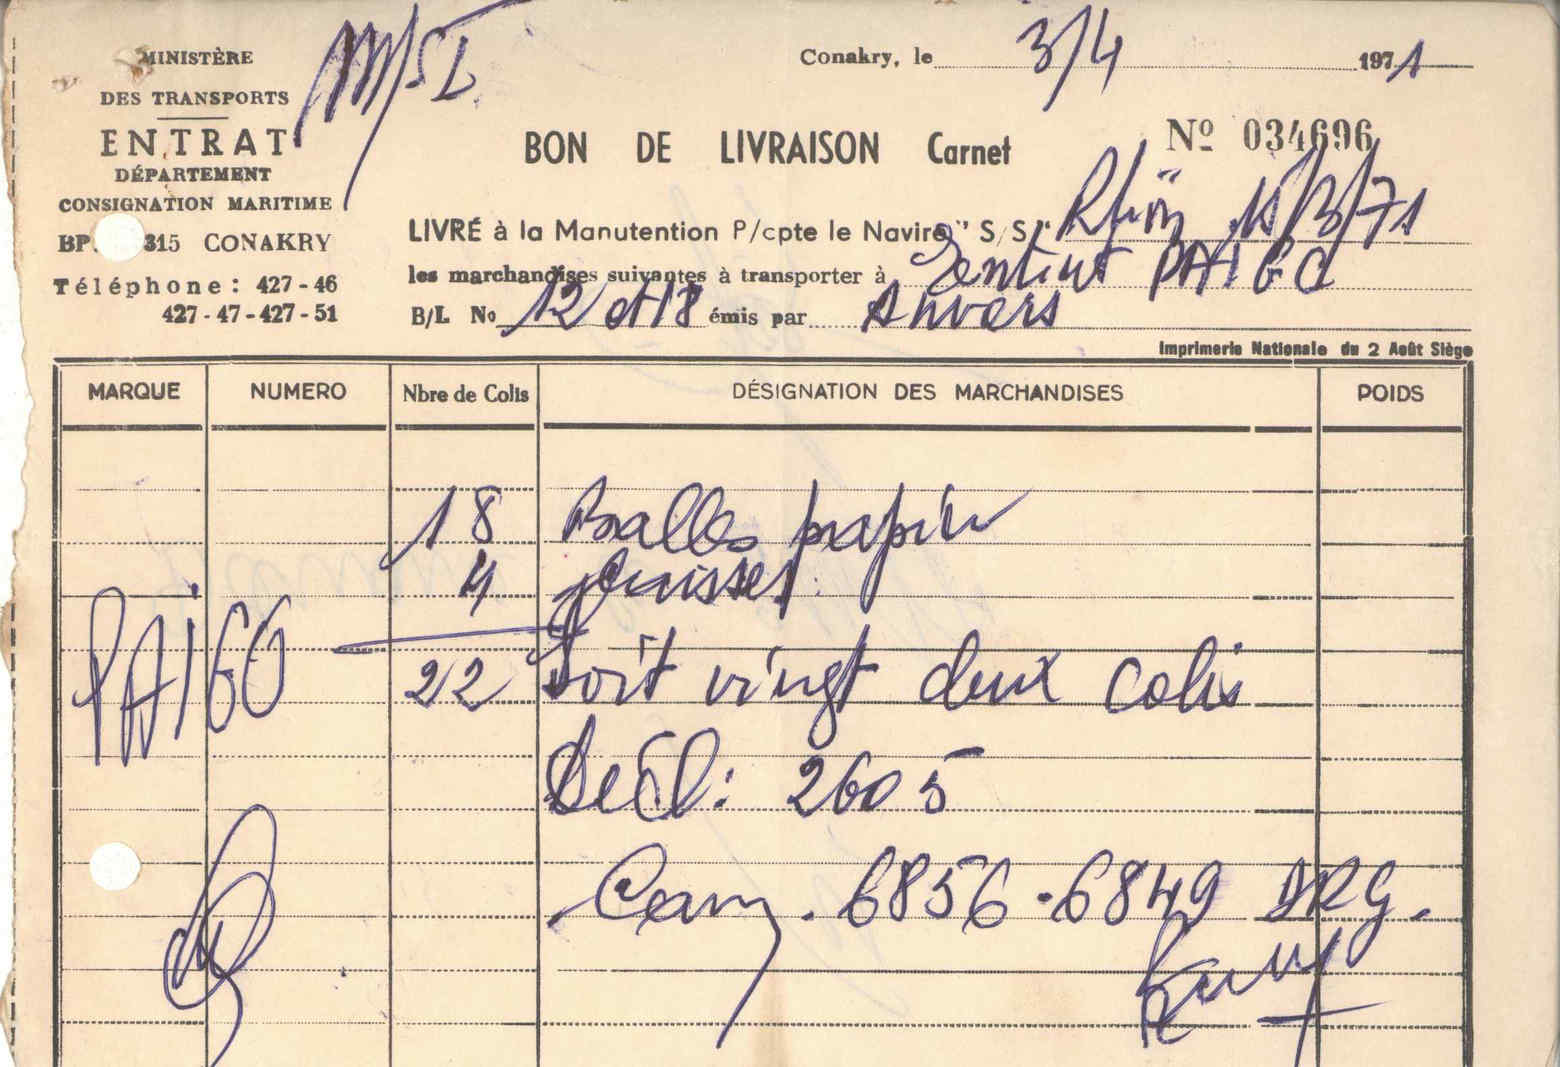 MINISTÈRE
DES TRANSPORTS
ENTRAT
DÉPARTEMENT
CONSIGNATION MARITIME
BP. 315 CONAKRY
Téléphone: 427-46
427-47-427-51
Conakry, le 3/4 1971
BON DE LIVRAISON Carnet
Nº 034696
LIVRÉ à la Manutention P/cpte le Navire " S/S " Rhön 15/3/71
les marchandises suivantes à transporter à PAIGC
B/L No 12 et 18 émis par Anvers
Imprimerie Nationale du 2 Août Siège
MARQUE NUMERO Nbre de Colis DÉSIGNATION DES MARCHANDISES POIDS
18 Balles papier
4 Caisses
PAIGC
22 Soit vingt deux colis
Decl: 2605
Cam. 6856-6849 DRG.